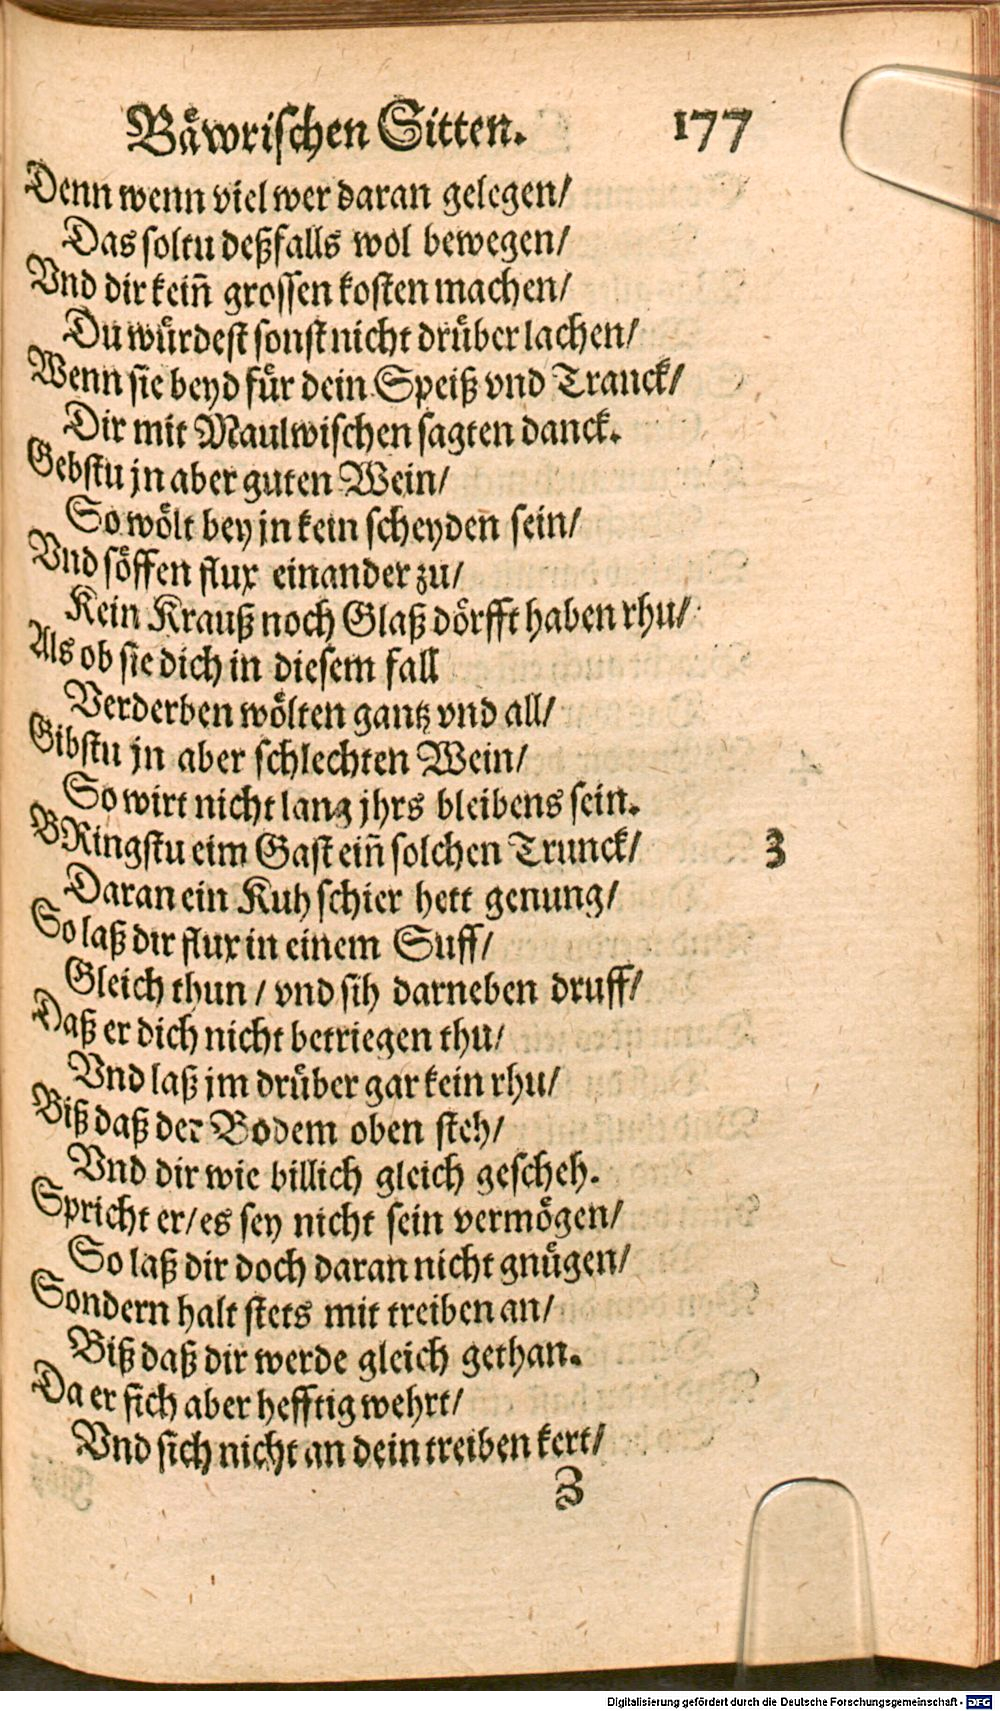 Bäwrischen Sitten. 177
Denn wenn viel wer daran gelegen/
Das soltu deßfalls wol bewegen/
Vnd dir kein̄ grossen kosten machen/
Du würdest sonst nicht drüber lachen/
Wenn sie beyd für dein Speiß vnd Tranck/
Dir mit Maulwischen sagten danck.
Gebstu jn aber guten Wein/
So wölt bey jn kein scheyden sein/
Vnd söffen flux einander zu/
Kein Krauß noch Glaß dörfft haben rhu/
Als ob sie dich in diesem fall
Verderben wölten gantz vnd all/
Gibstu jn aber schlechten Wein/
So wirt nicht lang jhrs bleibens sein.
BRingstu eim Gast ein̄ solchen Trunck/ 3
Daran ein Kuh schier hett genung/
So laß dir flux in einem Suff/
Gleich thun / vnd sih darneben druff/
Daß er dich nicht betriegen thu/
Vnd laß jm drüber gar kein rhu/
Biß daß der Bodem oben steh/
Vnd dir wie billich gleich gescheh.
Spricht er/ es sey nicht sein vermögen/
So laß dir doch daran nicht gnügen/
Sondern halt stets mit treiben an/
Biß daß dir werde gleich gethan.
Da er sich aber hefftig wehrt/
Vnd sich nicht an dein treiben kert/
Z
Digitalisierung gefördert durch die Deutsche Forschungsgemeinschaft - DFG